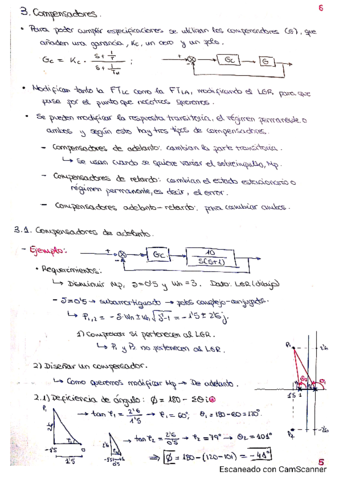 6
3. Compensadores.
• Para poder cumplir especificaciones se utilizan los compensadores (s), que
añaden una ganancia, Kc, un cero y un polo.
Gc = Kc · (s + 1/T) / (s + 1/Tα)
Gc
G
• Modifican tanto la FTLC como la FTLA, modificando el LGR para que
pase por el punto que nosotros queramos.
• Se pueden modificar la respuesta transitoria, el régimen permanente o
ambos y según este hay tres tipos de compensadores.
— Compensadores de adelanto: cambian la parte transitoria.
↳ Se usan cuando se quiere variar el sobreimpulso, Mp.
— Compensadores de retardo: cambian el estado estacionario o
régimen permanente, es decir, el error.
— Compensadores adelanto-retardo: para cambiar ambos.
3.1. Compensadores de adelanto.
- Ejemplo:
Gc
10 / s(s+1)
• Requerimientos:
↳ Disminuir Mp, δ=0'5 y Wn=3. Dato: LGR (dibujo)
- δ=0'5 → subamortiguado → polos complejo-conjugados.
↳ P1,2 = -δ·Wn ± Wn √(δ²-1) = -1'5 ± 2'6j
1) Comprobar si pertenecen al LGR.
↳ P1 y P2 no pertenecen al LGR.
2) Diseñar un compensador.
↳ Como queremos modificar Mp → De adelanto.
2.1) Deficiencia de ángulo: ϕ = 180 - Σθi
tan P1 = 2'6 / 1'5 → P1 = 60°, θ1 = 180-60 = 120°.
tan P2 = 2'6 / 0'5 → P2 = 79° → θ2 = 101°
⇒ ϕ = 180 - (120+101) = -41°
-1'5
1'5
0'5
5
Escaneado con CamScanner